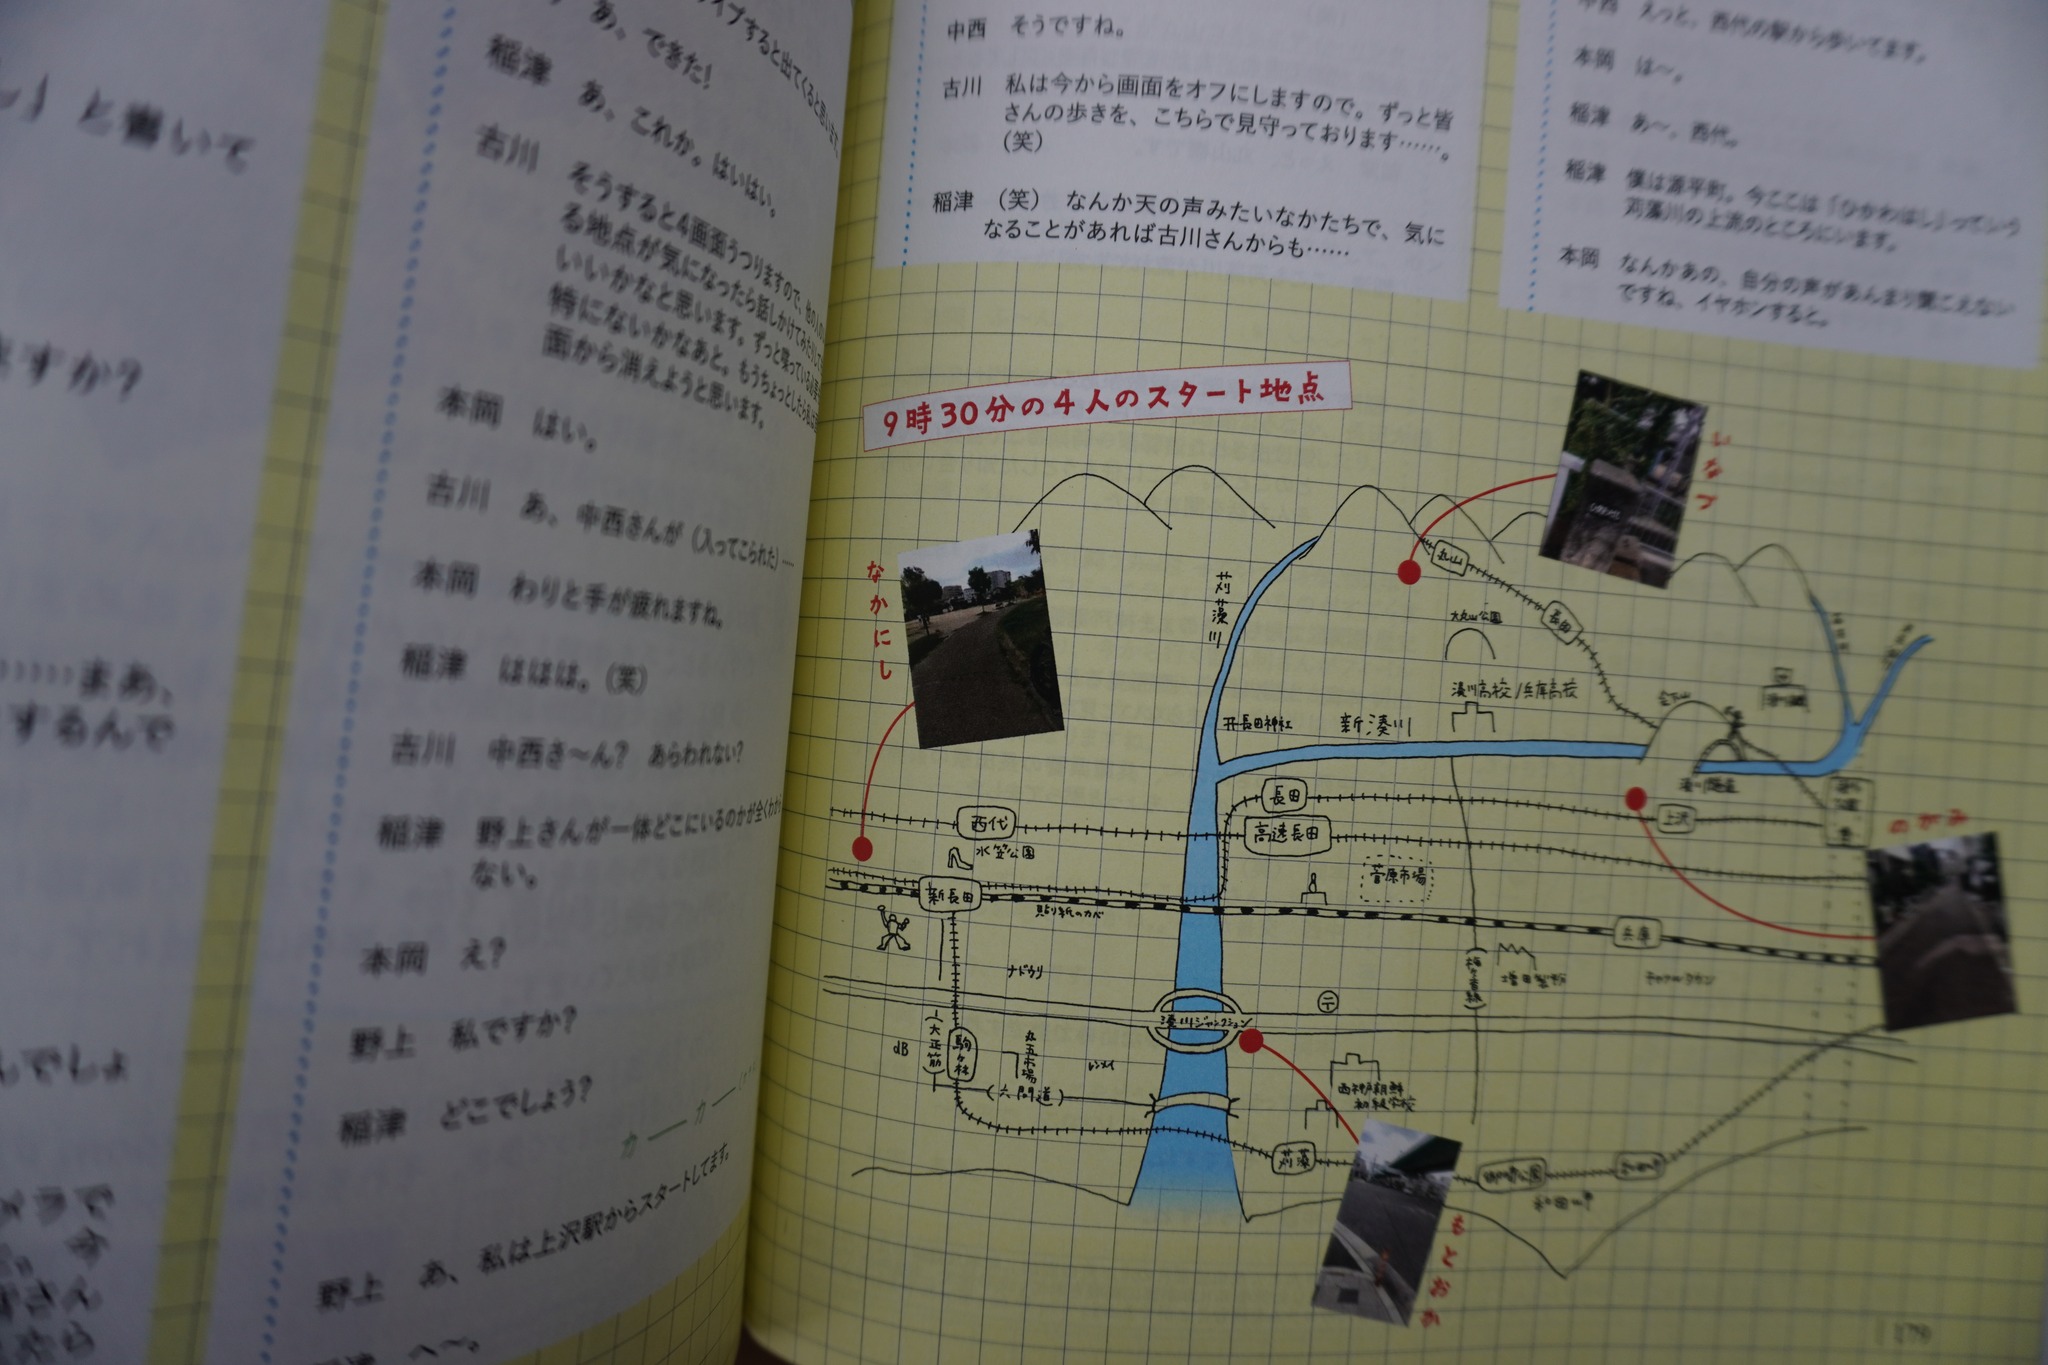 と書いて
ますか?
まあ、
するんで
んでしょ
イブすると出てくると思います。
あ、できた!
稲津 あ、これか。はいはい。
古川 そうすると4画面うつりますので、他の人の
る地点が気になったら話しかけてみたりして
いいかなと思います。ずっと喋っている必要
特にないかなあと。もうちょっとしたら私は
面から消えようと思います。
本岡 はい。
古川 あ、中西さんが(入ってこられた)……
本岡 わりと手が疲れますね。
稲津 ははは。(笑)
古川 中西さ〜ん? あらわれない?
稲津 野上さんが一体どこにいるのかが全くわから
ない。
本岡 え?
野上 私ですか?
稲津 どこでしょう?
カーカー
野上 あ、私は上沢駅からスタートしてます。
へ〜。
中西 そうですね。
古川 私は今から画面をオフにしますので。ずっと皆
さんの歩きを、こちらで見守っております……。
(笑)
稲津 (笑) なんか天の声みたいなかたちで、気に
なることがあれば古川さんからも……
中西 えっと、西代の駅から歩いてます。
本岡 は〜。
稲津 あ〜、西代。
稲津 僕は源平町。今ここは「ひかわはし」っていう
苅藻川の上流のところにいます。
本岡 なんかあの、自分の声があんまり聞こえない
ですね、イヤホンすると。
9時30分の4人のスタート地点
いなづ
なかにし
苅藻川
丸山
長田
大丸山公園
湊川高校/兵庫高校
長田神社
新湊川
会下山
湊川隧道
長田
西代
高速長田
上沢
のがみ
水笠公園
菅原市場
新長田
貼り紙のカベ
兵庫
ナドウリ
増田製粉
湊川ジャンクション
〒
dB
(大正筋)
駒ヶ林
丸五市場
(六間道)
西神戸朝鮮
初級学校
苅藻
もとおか
179